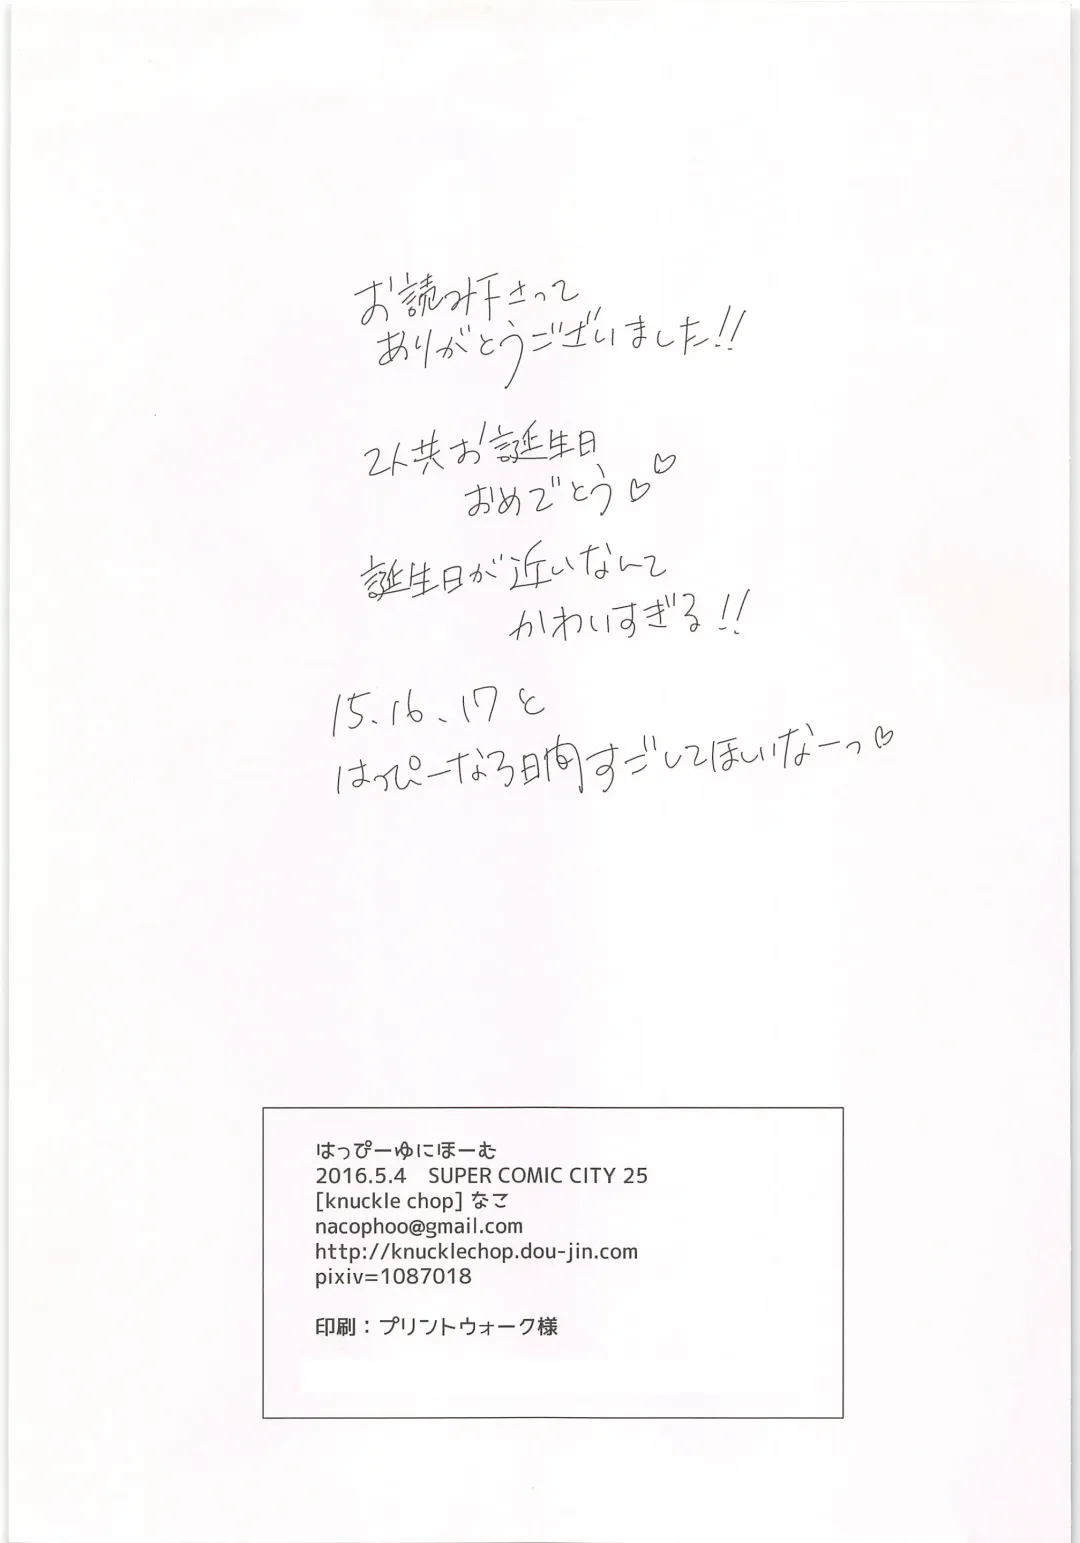 お読み下さって
ありがとうございました!!
2人共お誕生日
おめでとう♡♡
誕生日が近いなんて
かわいすぎる!!
15、16、17と
はっぴーなる日向すごしてほしいなーっ♡
はっぴーゆにほーむ
2016.5.4 SUPER COMIC CITY 25
[knuckle chop] なこ
nacophoo@gmail.com
http://knucklechop.dou-jin.com
pixiv=1087018
印刷：プリントウォーク様